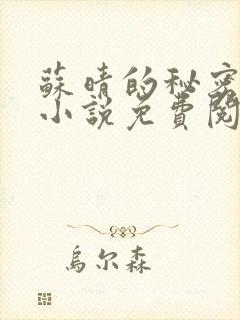 蘇晴的秘密
小説免費閱
烏尔森